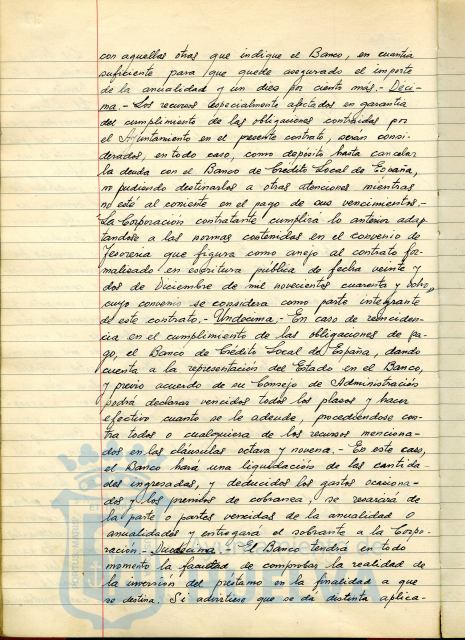 con aquellas otras que indique el Banco, en cuantia
suficiente para que quede asegurado el importe
de la anualidad y un diez por ciento más.- Déci-
ma.- Los recursos especialmente afectados en garantia
del cumplimiento de las obligaciones contraidas por
el Ayuntamiento en el presente contrato, serán consi-
derados, en todo caso, como depósito hasta cancelar
la deuda con el Banco de Crédito Local de España,
no pudiendo destinarlos a otras atenciones mientras
no esté al corriente en el pago de sus vencimientos.-
La Corporación contratante cumplirá lo anterior adap-
tandose a las normas contenidas en el convenio de
Tesoreria que figura como anejo al contrato for-
malizado en escritura pública de fecha veinte y
dos de Diciembre de mil novecientos cuarenta y ocho,
cuyo convenio se considera como parte integrante
de este contrato.- Undecima.- En caso de reinciden-
cia en el cumplimiento de las obligaciones de pa-
go, el Banco de Crédito Local de España, dando
cuenta a la representación del Estado en el Banco,
y previo acuerdo de su Consejo de Administración
podrá declarar vencidos todos los plazos y hacer
efectivo cuanto se le adeude, procediendose con-
tra todos o cualquiera de los recursos menciona-
dos en las cláusulas octava y novena.- En este caso,
el Banco hará una liquidación de las cantida-
des ingresadas, y deducidos los gastos ocasiona-
dos y los premios de cobranza, se resarcirá de
la parte o partes vencidas de la anualidad o
anualidades y entregará el sobrante a la Corpo-
ración.- Duodecima.- El Banco tendrá en todo
momento la facultad de comprobar la realidad de
la inversión del préstamo en la finalidad a que
se destina. Si advirtiese que se dá distinta aplica-